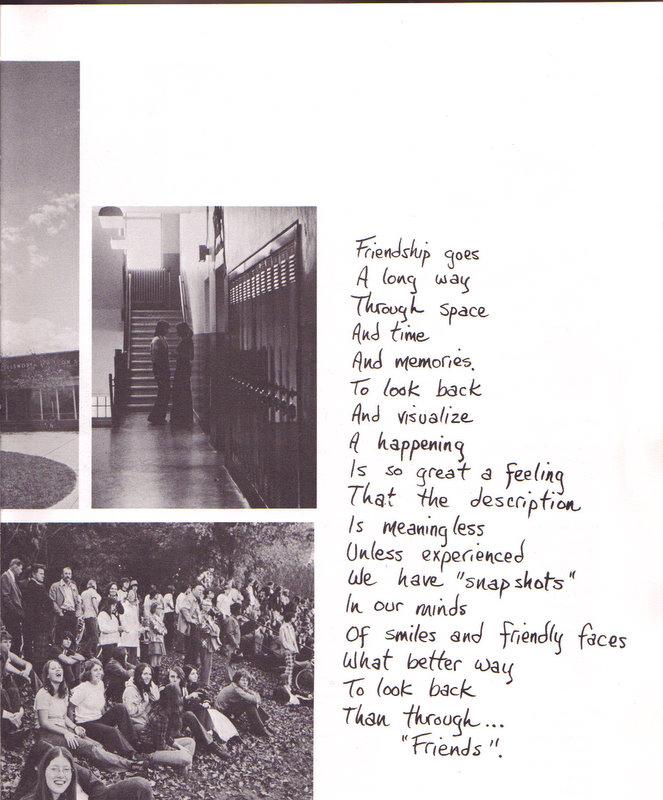 Friendship goes
A long way
Through space
And time
And memories.
To look back
And visualize
A happening
Is so great a feeling
That the description
Is meaningless
Unless experienced
We have "snapshots"
In our minds
Of smiles and friendly faces
What better way
To look back
Than through...
"Friends".